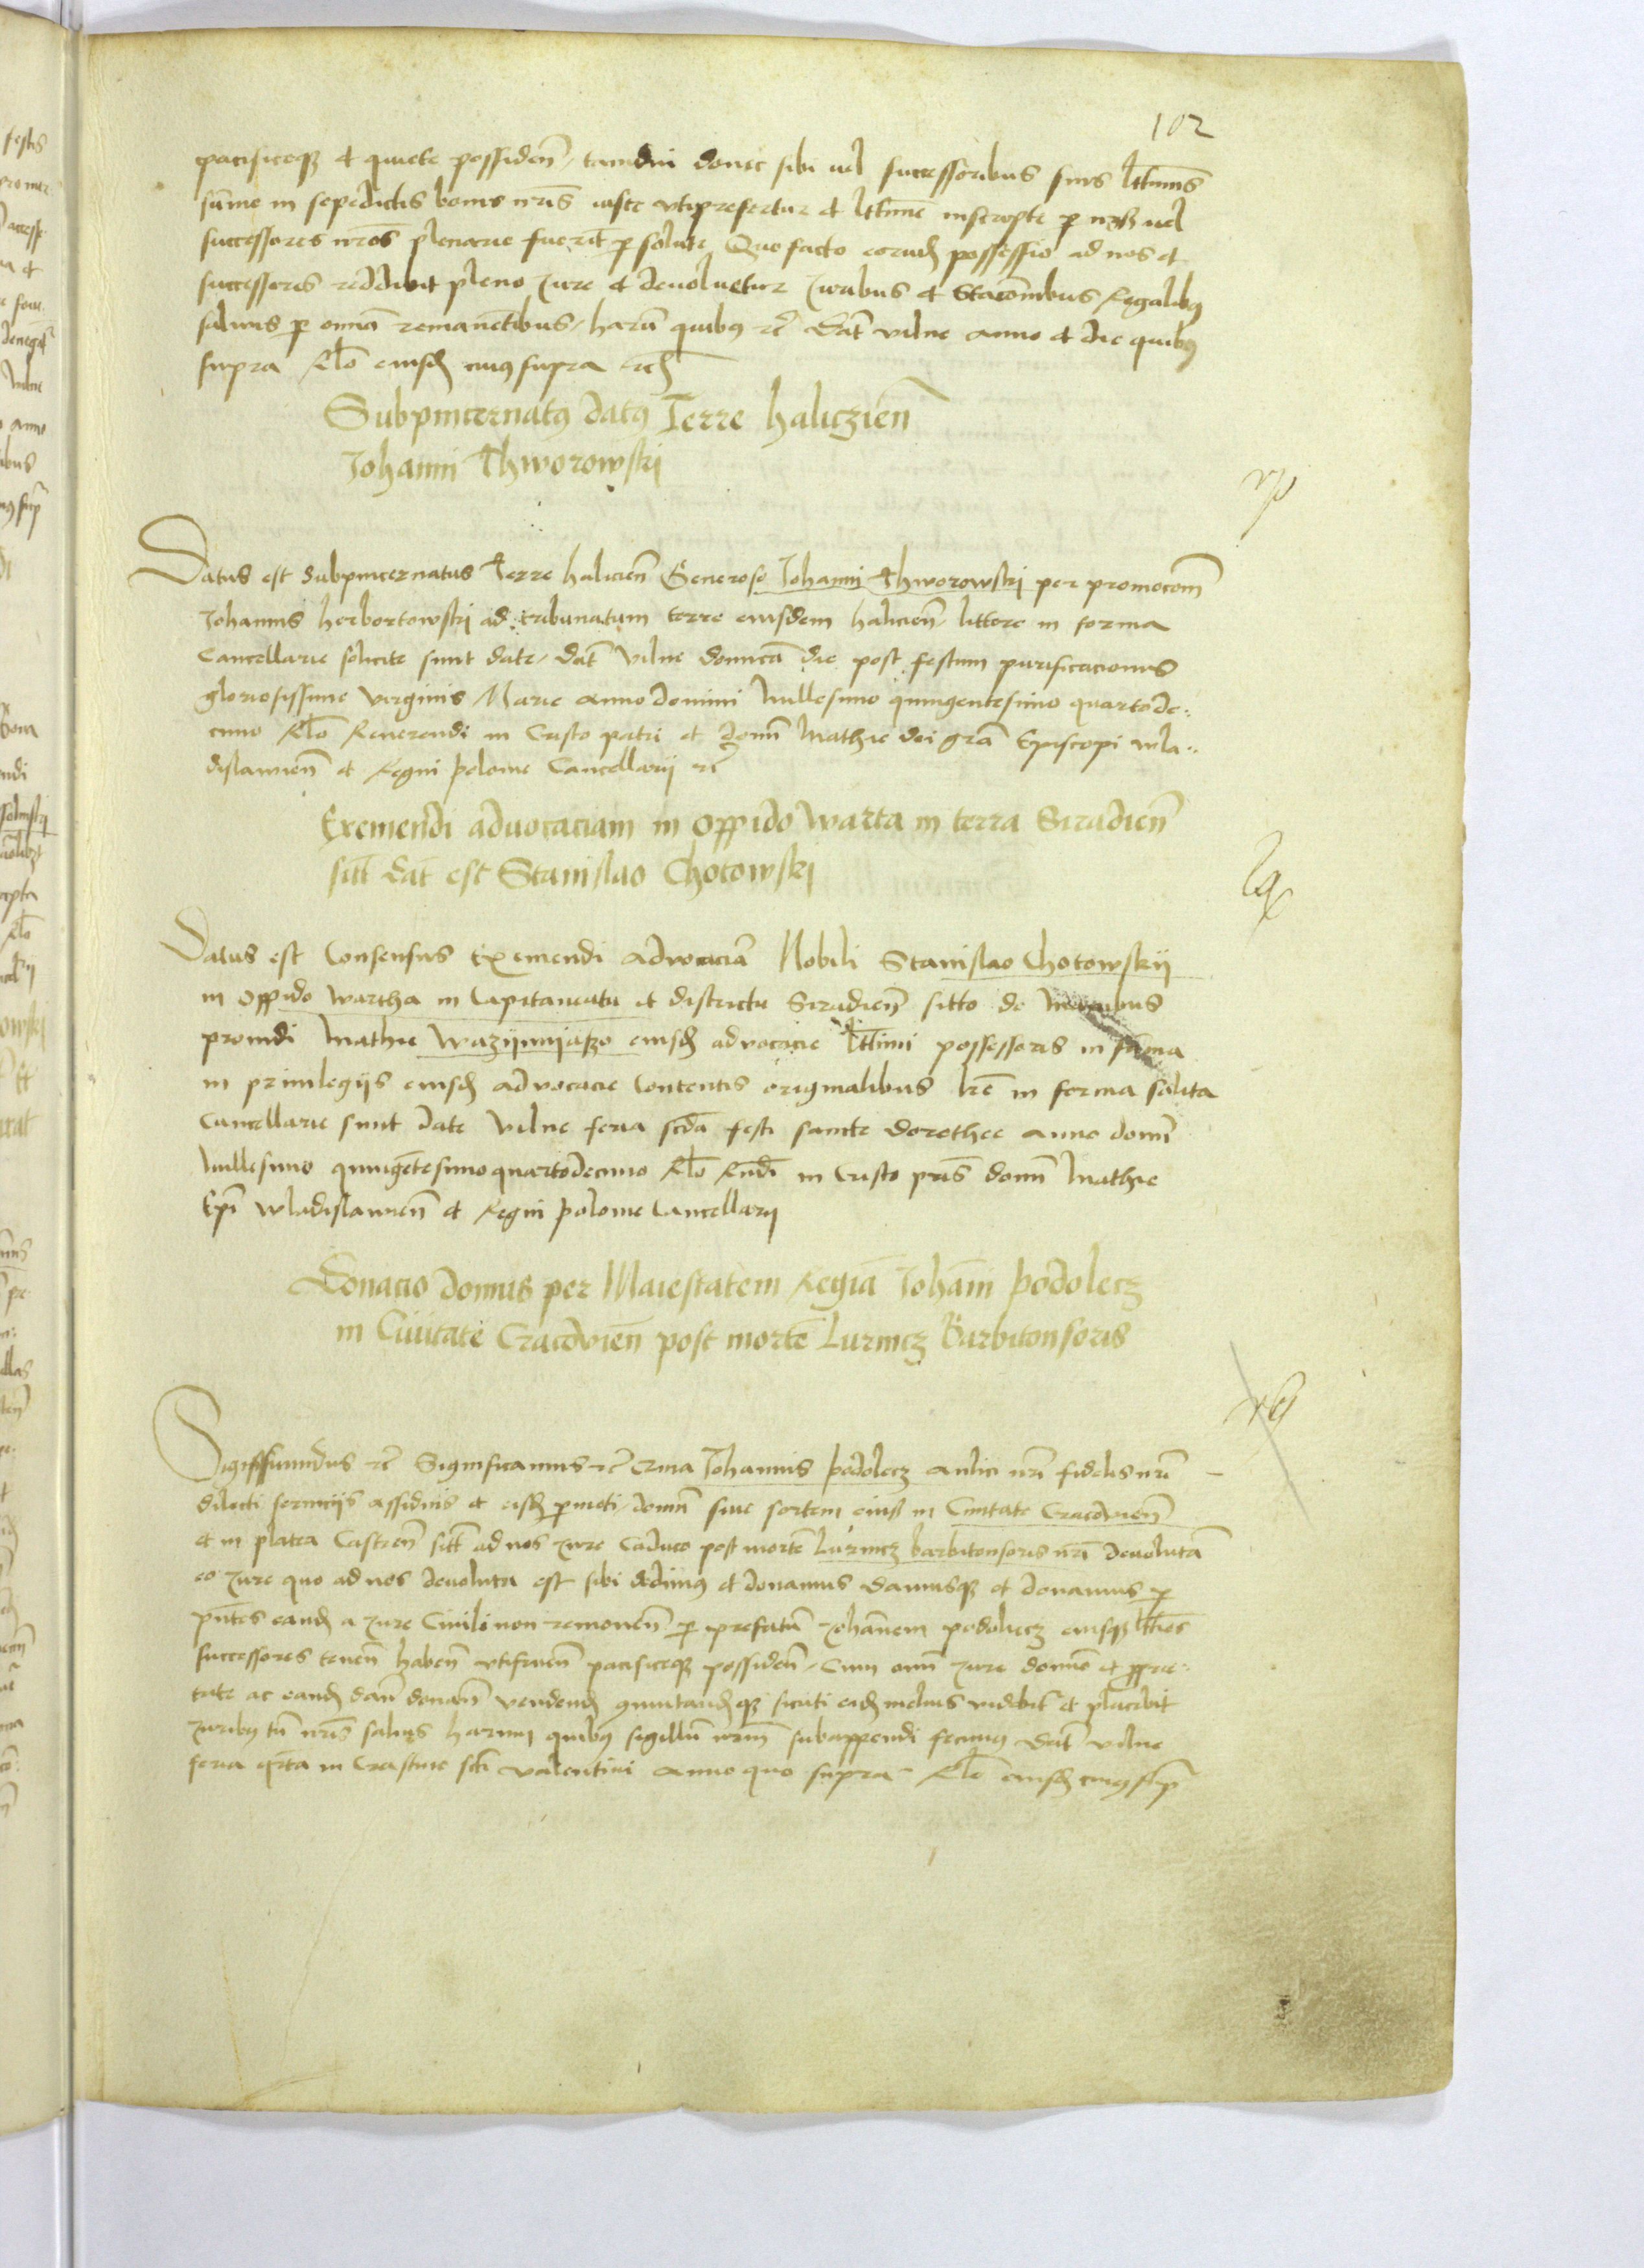 102
pacificeqz et quiete possiden̄ tamdiu donec sibi uel successoribus suis lt̄timis
sūme in sepedictis bonis nr̄is iuste vtiprefertur et lt̄time inscripte p nos uel
successores nr̄os plenarie fuerīt psolute Quo facto eorund possessio ad nos et
successores reddibit pleno Jure et deuoluetur Juribus et Stacōnibus Regalibus
saluis p omīa remanētibus harū quibus rc̄ Dat̄ vilne anno et die quibus
supra Rlo eiusd cuius supra etc
Subpincernatus datus Terre haliczien̄
Johanni Thworowski
Datus est Subpincernatus Terre halicien̄ Generoso Johanni Thworowski per promocōm
Johannis herbortowskj ad tribunatum terre eiusdem halicien̄ littere in forma
Cancellarie solite sunt date dat̄ Vilne dominica die post festum purificacionis
gloriosissime virginis Marie anno domini Millesimo quingentesimo quartode..
cimo Rlo Reuerendi in Cristo patri et domn̄ Mathie dei gra Episcopi wla..
dislauien̄ et Regni polonie Cancellarij rc̄
Exemendi aduocaciam in oppido Warta in terra Siradien̄
sitt̄ dat̄ est Stanislao Chotowski
Datus est Consensus Exemendi advocaciā Nobili Stanislao Chotowskij
in oppido Wartha in Capitaneatu et districtu Siradien̄ sitto de manibus
prouidi Mathie eiusd advocacie lt̄timi possessoris in sūma
in priuilegijs eiusd advocacie contentis originalibus lr̄e in forma solita
Cancellarie sunt date Vilne feria scd̄a festi sancte dorothee anno domī
Millesimo quingētesimoquartodecimo Rlo Rnd̄i in Cristo pr̄is domn̄ Mathie
Epī Wladislauien̄ et Regni polonie Cancellarij
Donacio domus per Maiestatem Regiā Johāni podolecz
in Ciuitate Cracovien̄ post mortē Lurincz Barbitonsoris
Sigissmundus rc̄ Significamus rc̄ Johannis podolecz aulici nr̄i fidelis nr̄i
dilecti seruicijs assiduis et eisd pmoti domū siue sortem eius in Ciuitate Cracovien̄
et in platea Castren̄ sitt̄ ad nos Jure Caduco post mortē Lurincz barbitonsoris nr̄i deuolutā
eo Jure quo ad nos deuoluta est sibi dedimus et donamus damusqz et donamus p
pn̄tes eand a Jure Ciuili non remouen̄ p prefatū Johānem podolecz eiusqz lt̄timos
successores tenen̄ haben̄ vtifruen̄ pacificeqz possiden̄ Cum omī Jure domīo et pprie..
tate ac eand dan̄ donan̄ vendend sicuti eid melius videbit̄ et placebit
Juribus tn̄ nr̄is saluis harum quibus sigillū nrm̄ subappendi fecimus dat̄ vilne
feria qr̄ta in Crastino scti valentini anno quo supra Rlo eiusd cuius sup